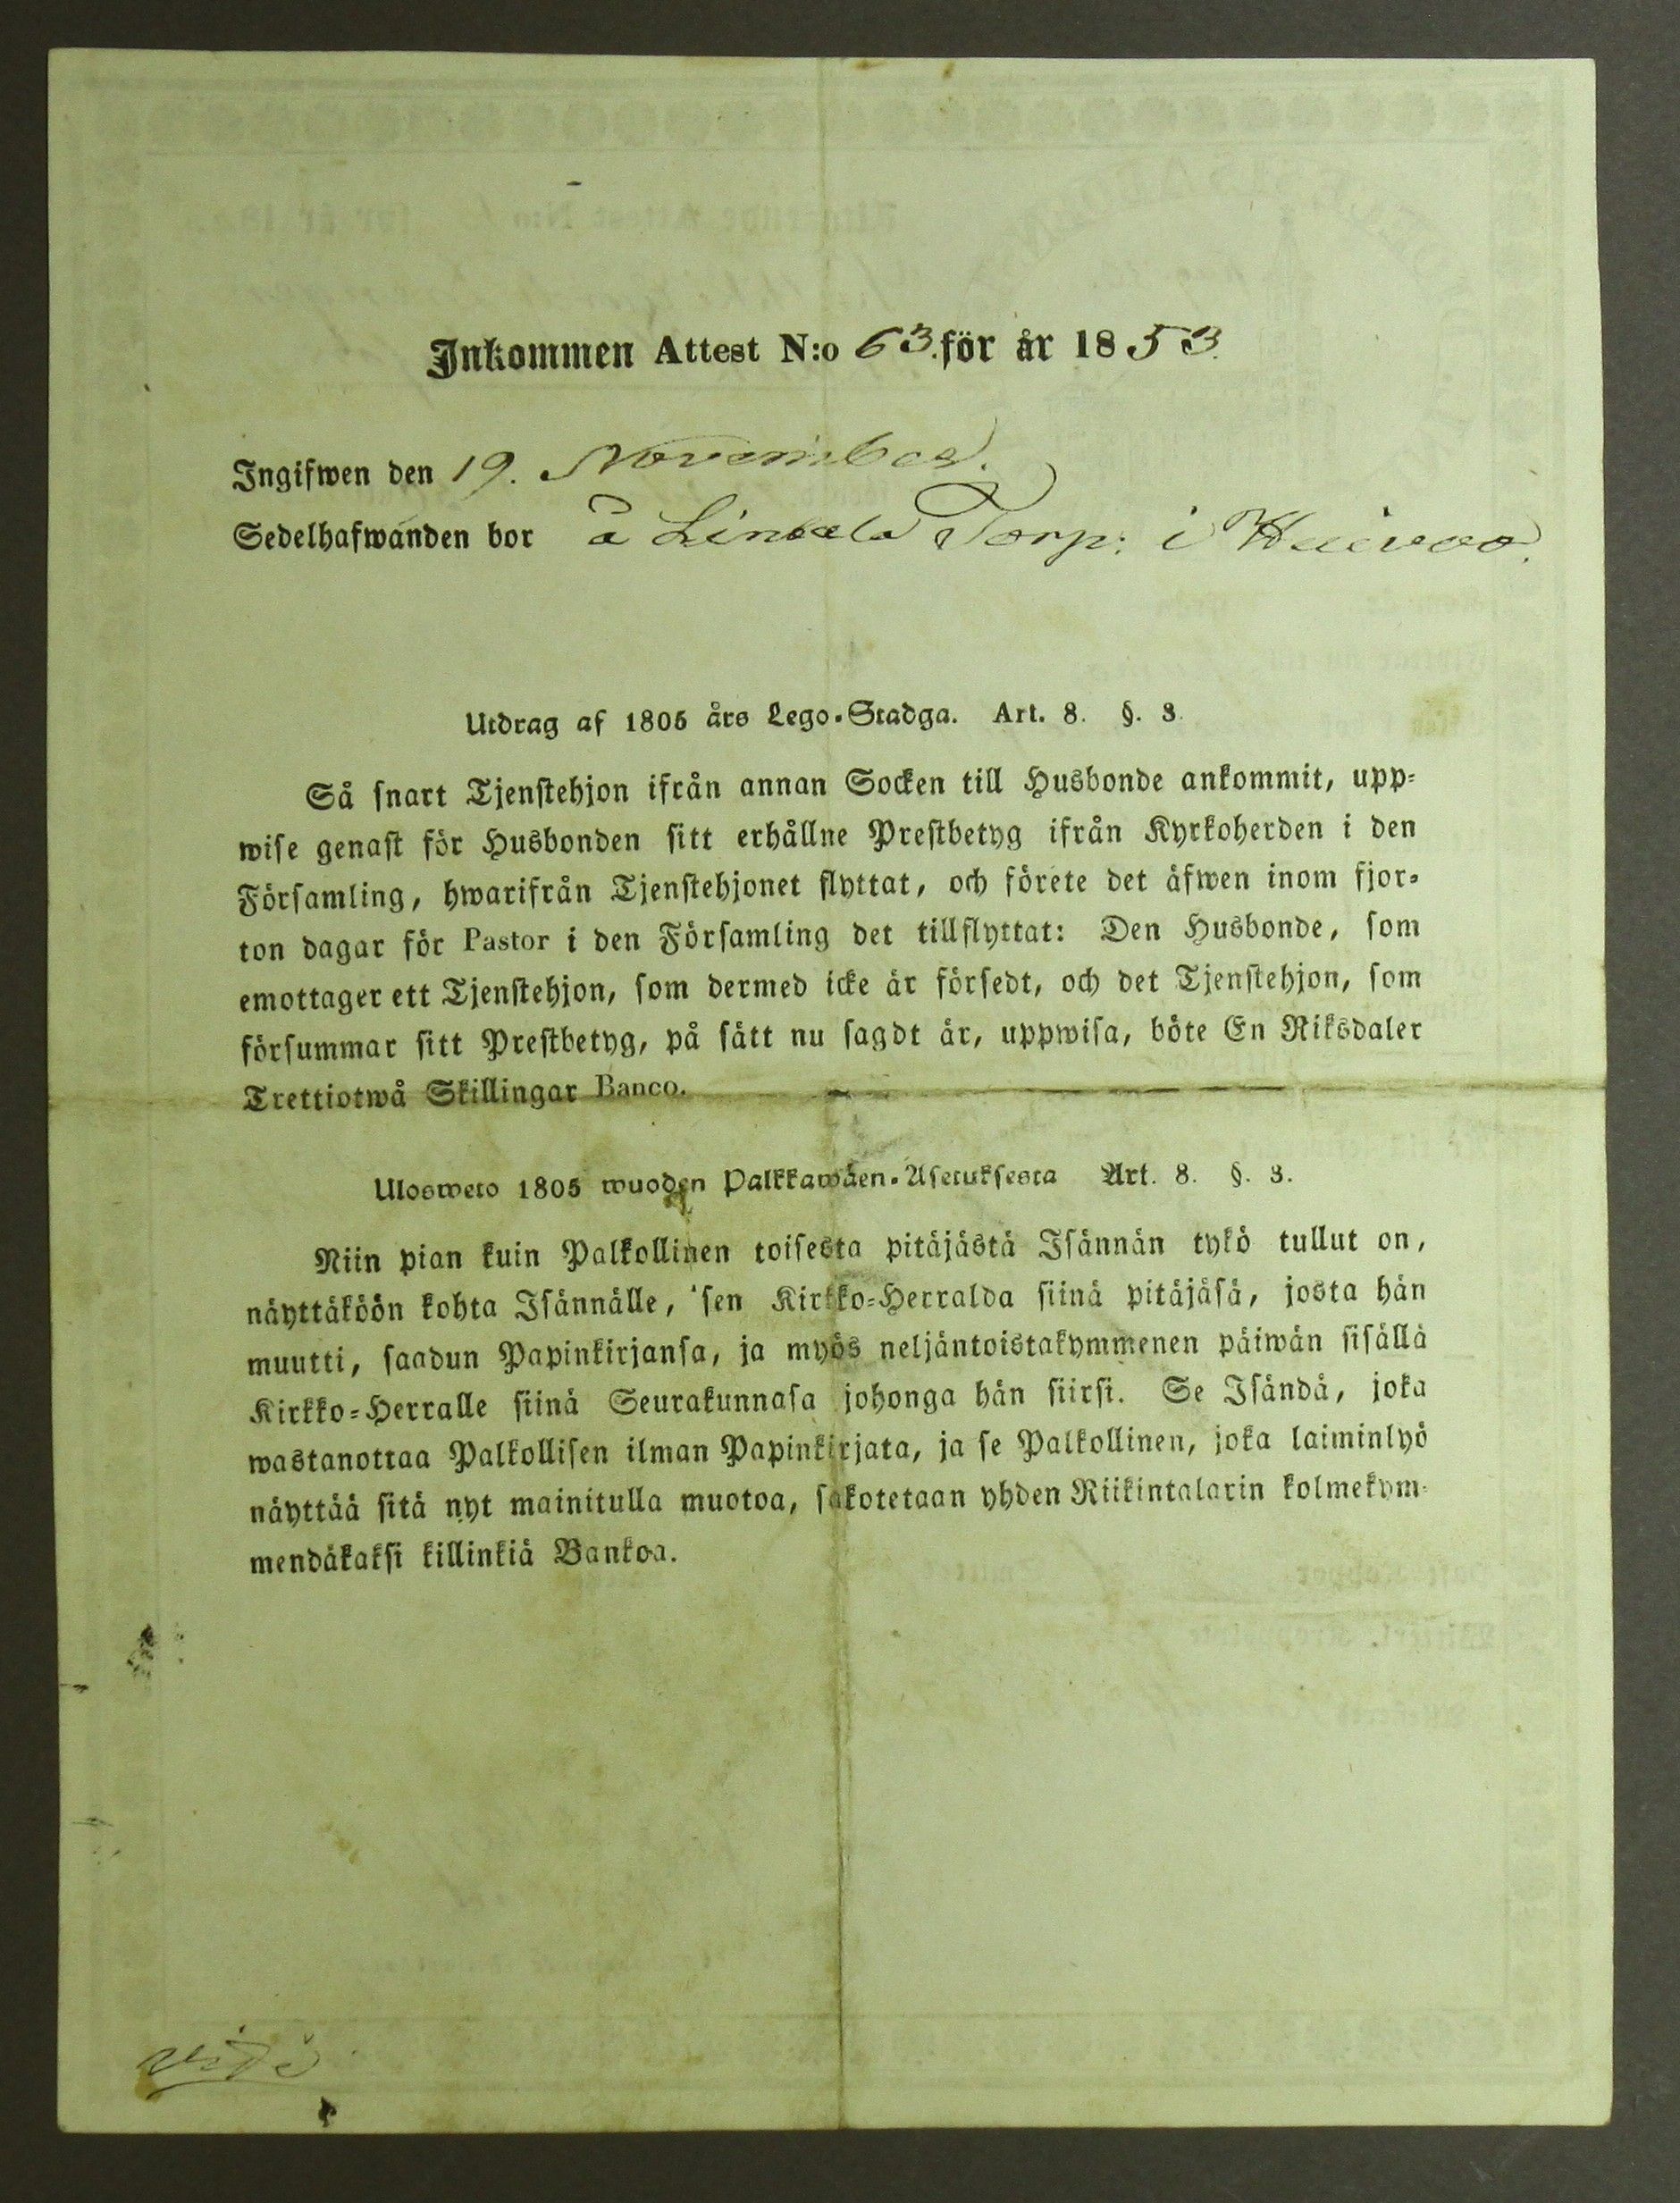 Inkommen Attest N:o 63. för år 1853.
Ingifwen den 19. November.
Sedelhafwanden bor å Torp: i
Utdrag af 1805 års Lego-Stadga. Art. 8. §. 3.
Så snart Tjenstehjon ifrån annan Socken till Husbonde ankommit, upp-
wise genast för Husbonden sitt erhållne Prestbetyg ifrån Kyrkoherden i den
Församling, hwarifrån Tjenstehjonet flyttat, och förete det äfwen inom fjor-
ton dagar för Pastor i den Församling det tillflyttat: Den Husbonde, som
emottager ett Tjenstehjon, som dermed icke är försedt, och det Tjenstehjon, som
försummar sitt Prestbetyg, på sätt nu sagdt är, uppwisa, böte En Riksdaler
Trettiotwå Skillingar Banco.
Ulosweto 1805 wuoden Palkkawäen-Asetuksesta Art. 8. §. 3.
Niin pian kuin Palkollinen toisesta pitäjästä Isännän tykö tullut on,
näyttäköön kohta Isännälle, sen Kirkko-Herralda siinä pitäjäsä, josta hän
muutti, saadun Papinkirjansa, ja myös neljäntoistakymmenen päiwän sisällä
Kirkko-Herralle siinä Seurakunnasa johonga hän siirsi. Se Isändä, joka
wastanottaa Palkollisen ilman Papinkirjata, ja se Palkollinen, joka laiminlyö
näyttää sitä nyt mainitulla muotoa, sakotetaan yhden Riikintalarin kolmekym-
mendäkaksi killinkiä Bankoa.